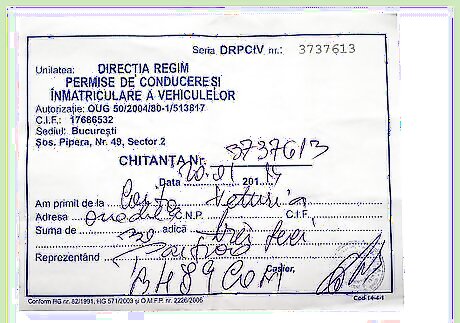 Seria DRPCIV nr.: 3737613
Unitatea: DIRECȚIA REGIM
PERMISE DE CONDUCERE ȘI
ÎNMATRICULARE A VEHICULELOR
Autorizație: OUG 50/2004/80-1/513817
C.I.F.: 17686532
Sediul: București
Șos. Pipera, Nr. 49, Sector 2
CHITANȚA Nr. 3737613
Data 20.01 201
Am primit de la
Adresa C.N.P. C.I.F.
Suma de 30 adică trei zeci
Reprezentând
BH89COM Casier,
Conform HG nr. 82/1991, HG 571/2003 și O.M.F.P. nr. 2226/2006 Cod 14-4-1